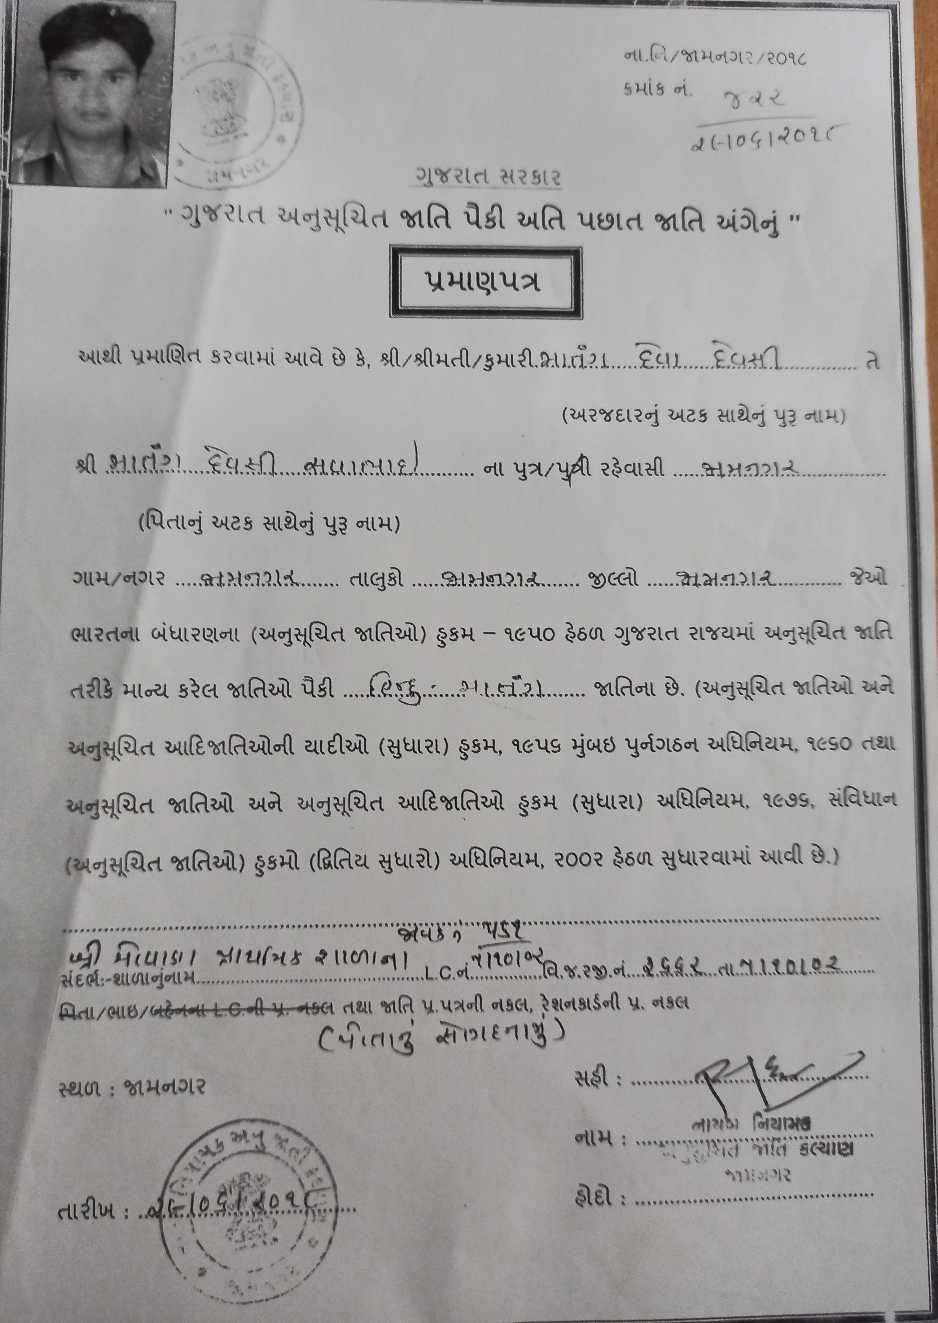 ના.નિ/જામનગર/૨૦૧૮
ક્માંક નં. ૪૨૨
૨૯૧૦૬।૨૦૧૮
ગુજરાત સરકાર
" ગુજરાત અનુસૂચિત જાતિ પૈકી અતિ પછાત જાતિ અંગેનું "
પ્રમાણપત્ર
આથી પ્રમાણિત કરવામાં આવે છે કે, શ્રી/શ્રીમતી/કુમારી.માતંગ દેવા દેવસી તે
(અરજદારનું અટક સાથેનું પુરૂ નામ)
શ્રી માતંગ દેવસી ના પુત્ર/પુત્રી રહેવાસી જામનગર
(પિતાનું અટક સાથેનું પુરૂ નામ)
ગામ/નગર જામનગર તાલુકો જામનગર જીલ્લો જામનગર જેઓ
ભારતના બંધારણના (અનુસૂચિત જાતિઓ) હુકમ – ૧૯૫૦ હેઠળ ગુજરાત રાજયમાં અનુસૂચિત જાતિ
તરીકે માન્ય કરેલ જાતિઓ પૈકી હિન્દુ - માતંગ જાતિના છે. (અનુસૂચિત જાતિઓ અને
અનુસૂચિત આદિજાતિઓની યાદીઓ (સુધારા) હુકમ, ૧૯૫૬ મુંબઇ પુર્નગઠન અધિનિયમ, ૧૯૬૦ તથા
અનુસૂચિત જાતિઓ અને અનુસૂચિત આદિજાતિઓ હુકમ (સુધારા) અધિનિયમ, ૧૯૭૬, સંવિધાન
(અનુસૂચિત જાતિઓ) હુકમો (દ્રિતિય સુધારો) અધિનિયમ, ૨૦૦૨ હેઠળ સુધારવામાં આવી છે.)
જાવક નં ૫૬૧
શ્રી પ્રાથમિક શાળાના
સંદર્ભ:-શાળાનુંનામ L.C.નં. વિ.જ.રજી.નં. ૨૬૬૨ તા.
પિતા/ભાઇ/બહેનના L.C.ની પ્ર. નકલ તથા જાતિ પ્ર.પત્રની નકલ, રેશનકાર્ડની પ્ર. નકલ
(પીતાનું સોગદનામું)
સ્થળ : જામનગર
સહી :
નામ : નાયબ નિયામક
અનુસૂચિત જાતિ કલ્યાણ
જામનગર
તારીખ : ૨૯।૦૬।૨૦૧૮
હોદો :